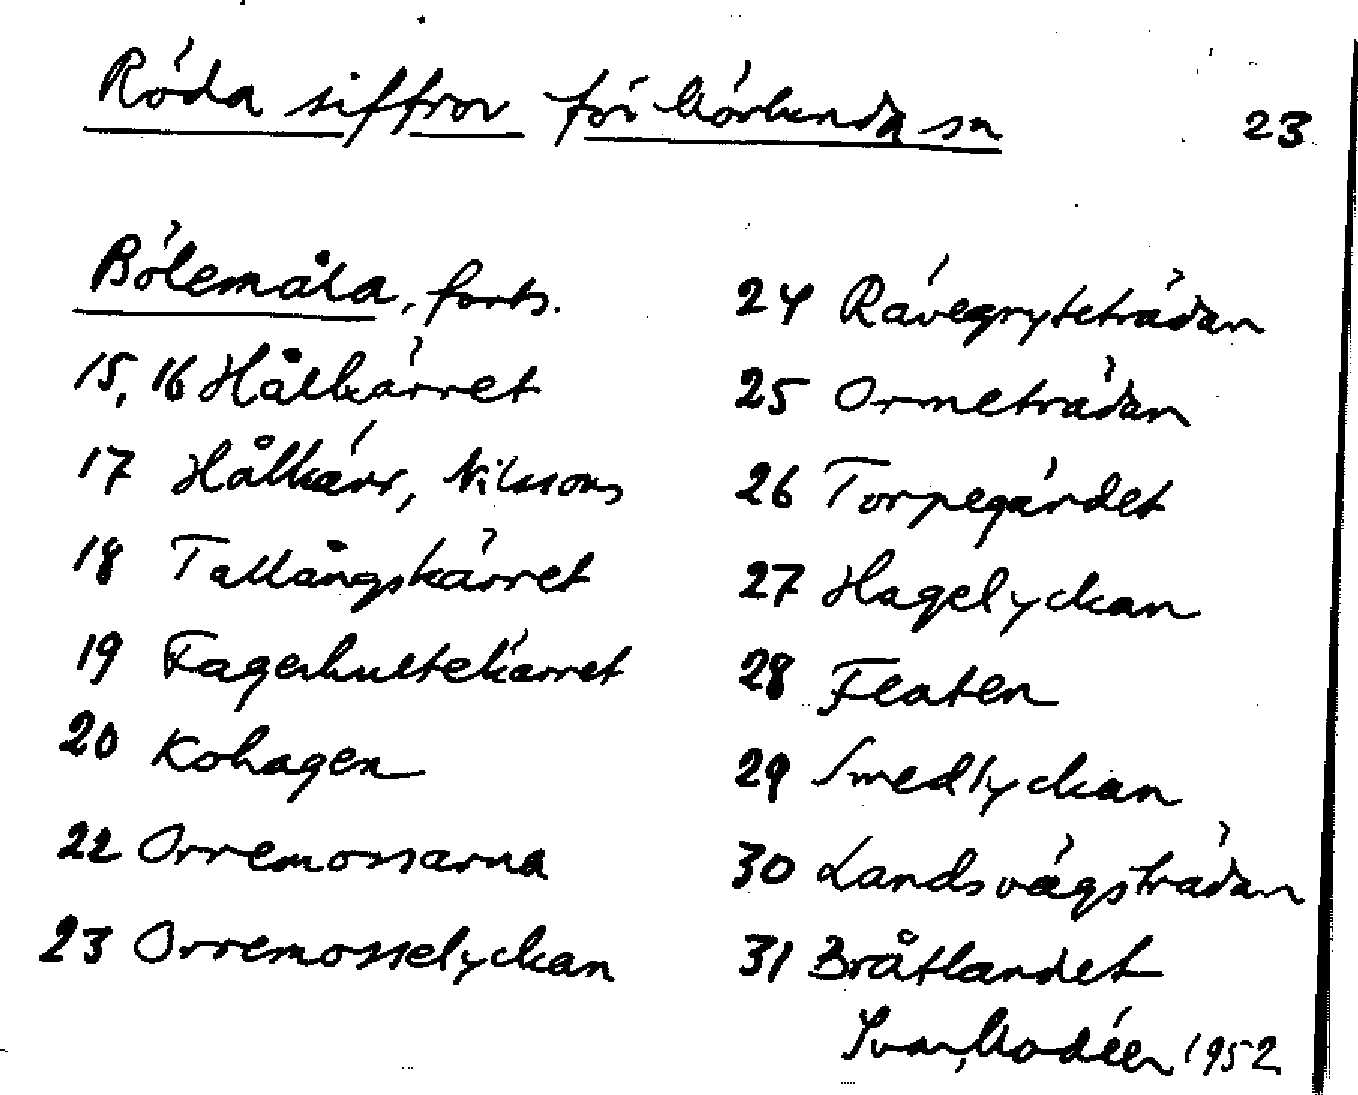 Röda siffror för Mörlunda sn
23
Bölemåla, forts.
15, 16 Hålkärret
17 Hålkärr, Nilssons
18 Tallångskärret
19 Fagerhultekärret
20 Kohagen
22 Orremossarna
23 Orremosselyckan
24 Rävegryteträdan
25 Ormeträdan
26 Torpegärdet
27 Hagelyckan
28 Flaten
29 Smedlyckan
30 Landsvägsträdan
31 Bråtlandet
Ivar Modéer 1952